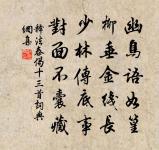 幽鳥語如篁
柳垂金線長
少林傳底事
對面不囊藏
釋法泰偈十三首詞典
網集